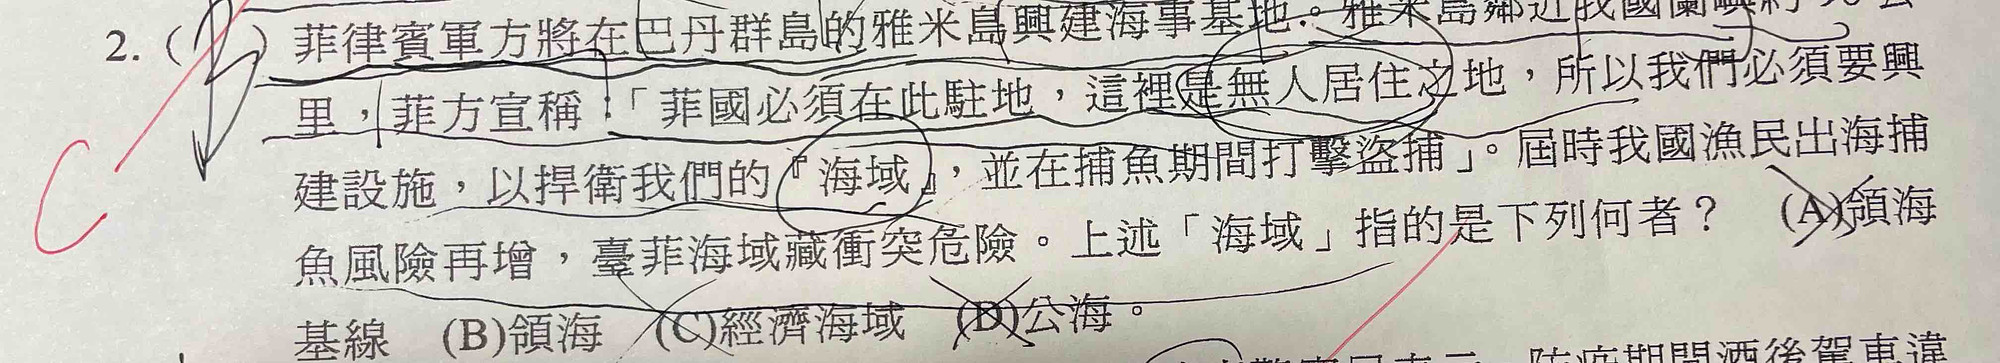 2. ( B ) 菲律賓軍方將在巴丹群島的雅米島興建海事基地。雅米島鄰近我國蘭嶼約
里，菲方宣稱：「菲國必須在此駐地，這裡是無人居住之地，所以我們必須要興
建設施，以捍衛我們的『海域』，並在捕魚期間打擊盜捕」。屆時我國漁民出海捕
魚風險再增，臺菲海域藏衝突危險。上述「海域」指的是下列何者？ (A)領海
基線 (B)領海 (C)經濟海域 (D)公海。
C
防疫期間酒後駕車違